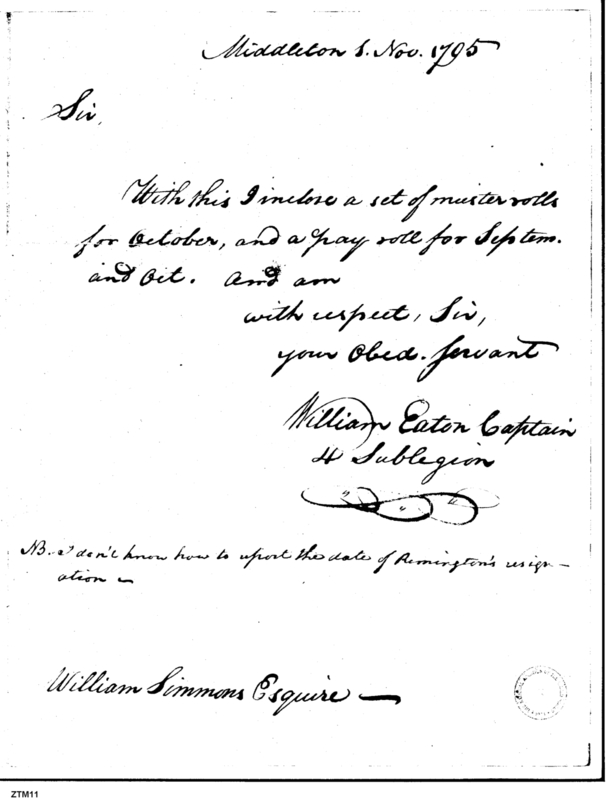 Middleton 1. Nov. 1795
Sir,
With this I inclose a set of muster rolls
for October, and a pay roll for Septem.
and Oct. And am
with respect, Sir,
your Obed. Servant
William Eaton Captain
4 Sublegion
NB. I don't know how to report the date of Remington's resign-
ation
William Simmons Esquire
ZTM11